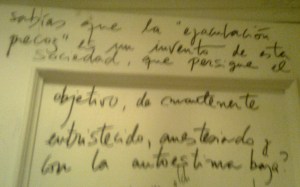 sabías que la "eyaculación
precoz" es un invento de esta
sociedad, que persigue el
objetivo, de mantenerte
entristecido, anestesiado y
con la autoestima baja?